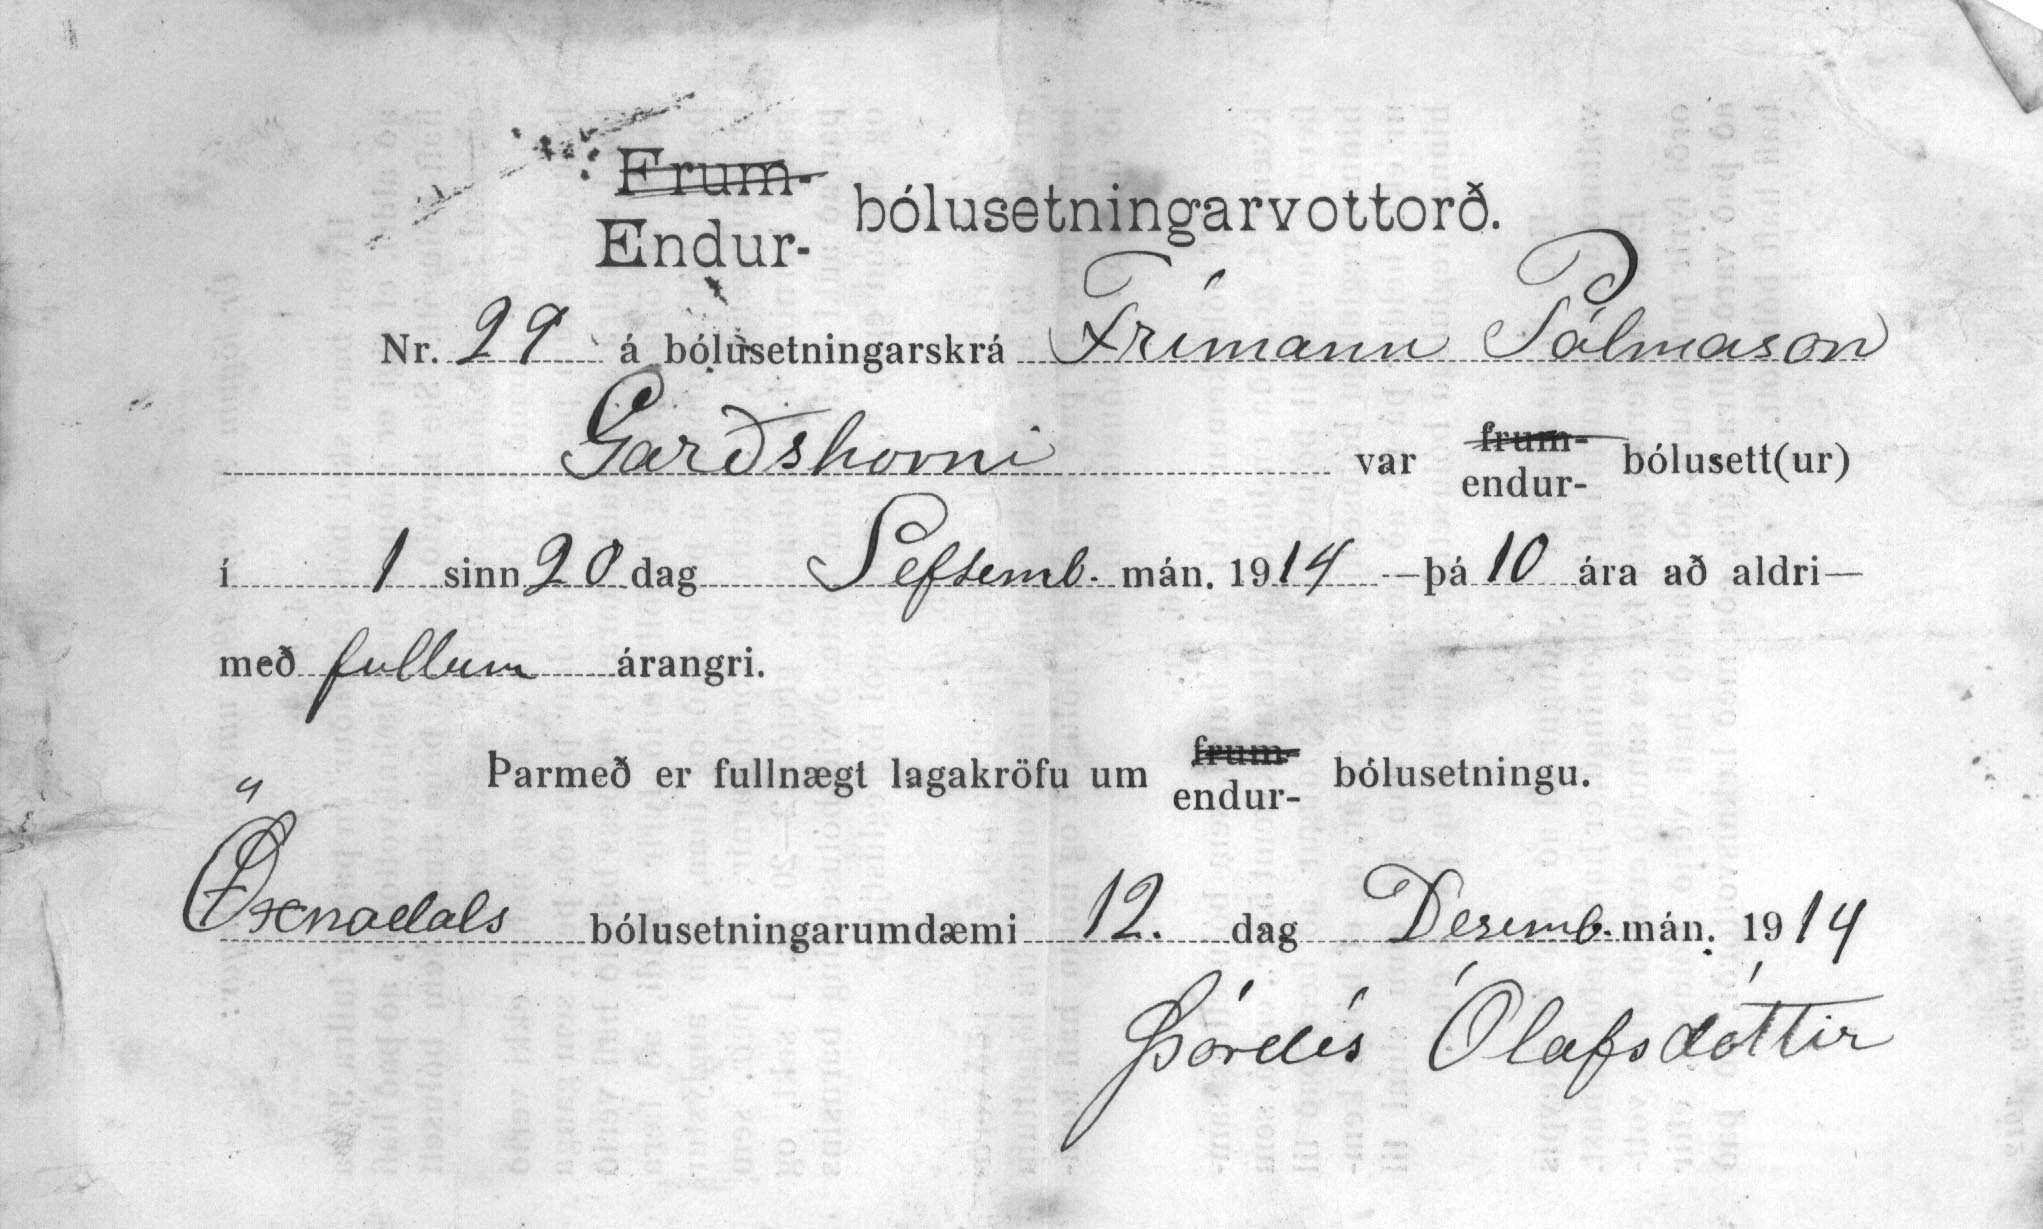 Frum-
Endur- bólusetningarvottorð.
Nr. 29 á bólusetningarskrá Frímann Pálmason
Garðshorni var frum- endur- bólusett(ur)
í 1 sinn 20 dag Septemb. mán. 1914 —þá 10 ára að aldri—
með fullum árangri.
Þarmeð er fullnægt lagakröfu um frum- endur- bólusetningu.
Öxnadals bólusetningarumdæmi 12. dag Desemb. mán. 1914
Þórdís Ólafsdóttir